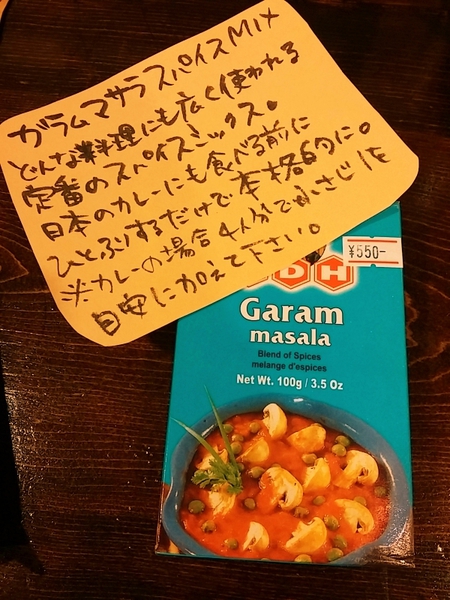 ガラムマサラスパイスMIX
どんな料理にも広く使われる
定番のスパイスミックス。
日本のカレーにも食べる前に
ひとふりするだけで本格的に。
※カレーの場合4人分で小さじ1を
目安に加えて下さい。
DH
¥550-
Garam
masala
Blend of Spices
melange d'espices
Net Wt. 100g / 3.5 Oz